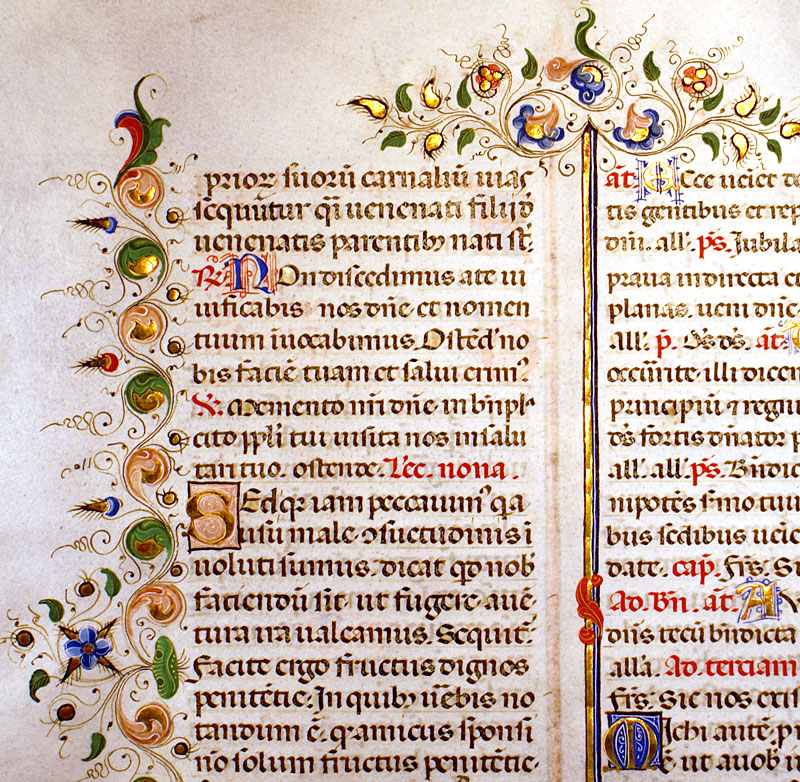 prior suorū carnaliū uias
sequūtur qi uenenati filij d
uenenatis parentibȝ nati st̄:
R̄. Non discedimus a te ui
uificabis nos dn̄e et nomen
tuum īuocabimus. Ostēd' no
bis faciē tuam et salui erimꝰ.
V̄. Memento nr̄i dn̄e in bn̄pl'
cito ppl̄i tui uisita nos in salu
tari tuo. ostende. Lec. nona.
Sed qr iam peccauimꝰ q̄a
usu male ɔsuetudinis ī
uoluti sumus. dicat qd nob'
faciendū sit. ut fugere auē
tura ira ualeamus. Sequit̄:
Facite ergo fructus dignos
penitētie. In quibȝ uēbis no
tandum ē. q. amicus sponsi
nō solum fructus penitētie.
at̄. Ecce ueiet de
tis gentibus et rep
dni. all'. ps̄. Jubila
praua in directa e
planas. ueni dn̄e.
all'. p̄. Ds̄ ds̄. at̄.
occūrite. illi dicen
principiū. ⁊ regni
ds̄ fortis dn̄ator p
all'. all'. ps̄. Bn̄dic
nipotēs s̄mo tuu
bus sedibus ueie
date. cap̄. Frs̄. Si
Ad. Bn̄. at̄. A
dn̄s tecū bn̄dicta
alla. Ad. terciam
Frs̄. Sic nos exis
Michi autē. p
me ut a uob